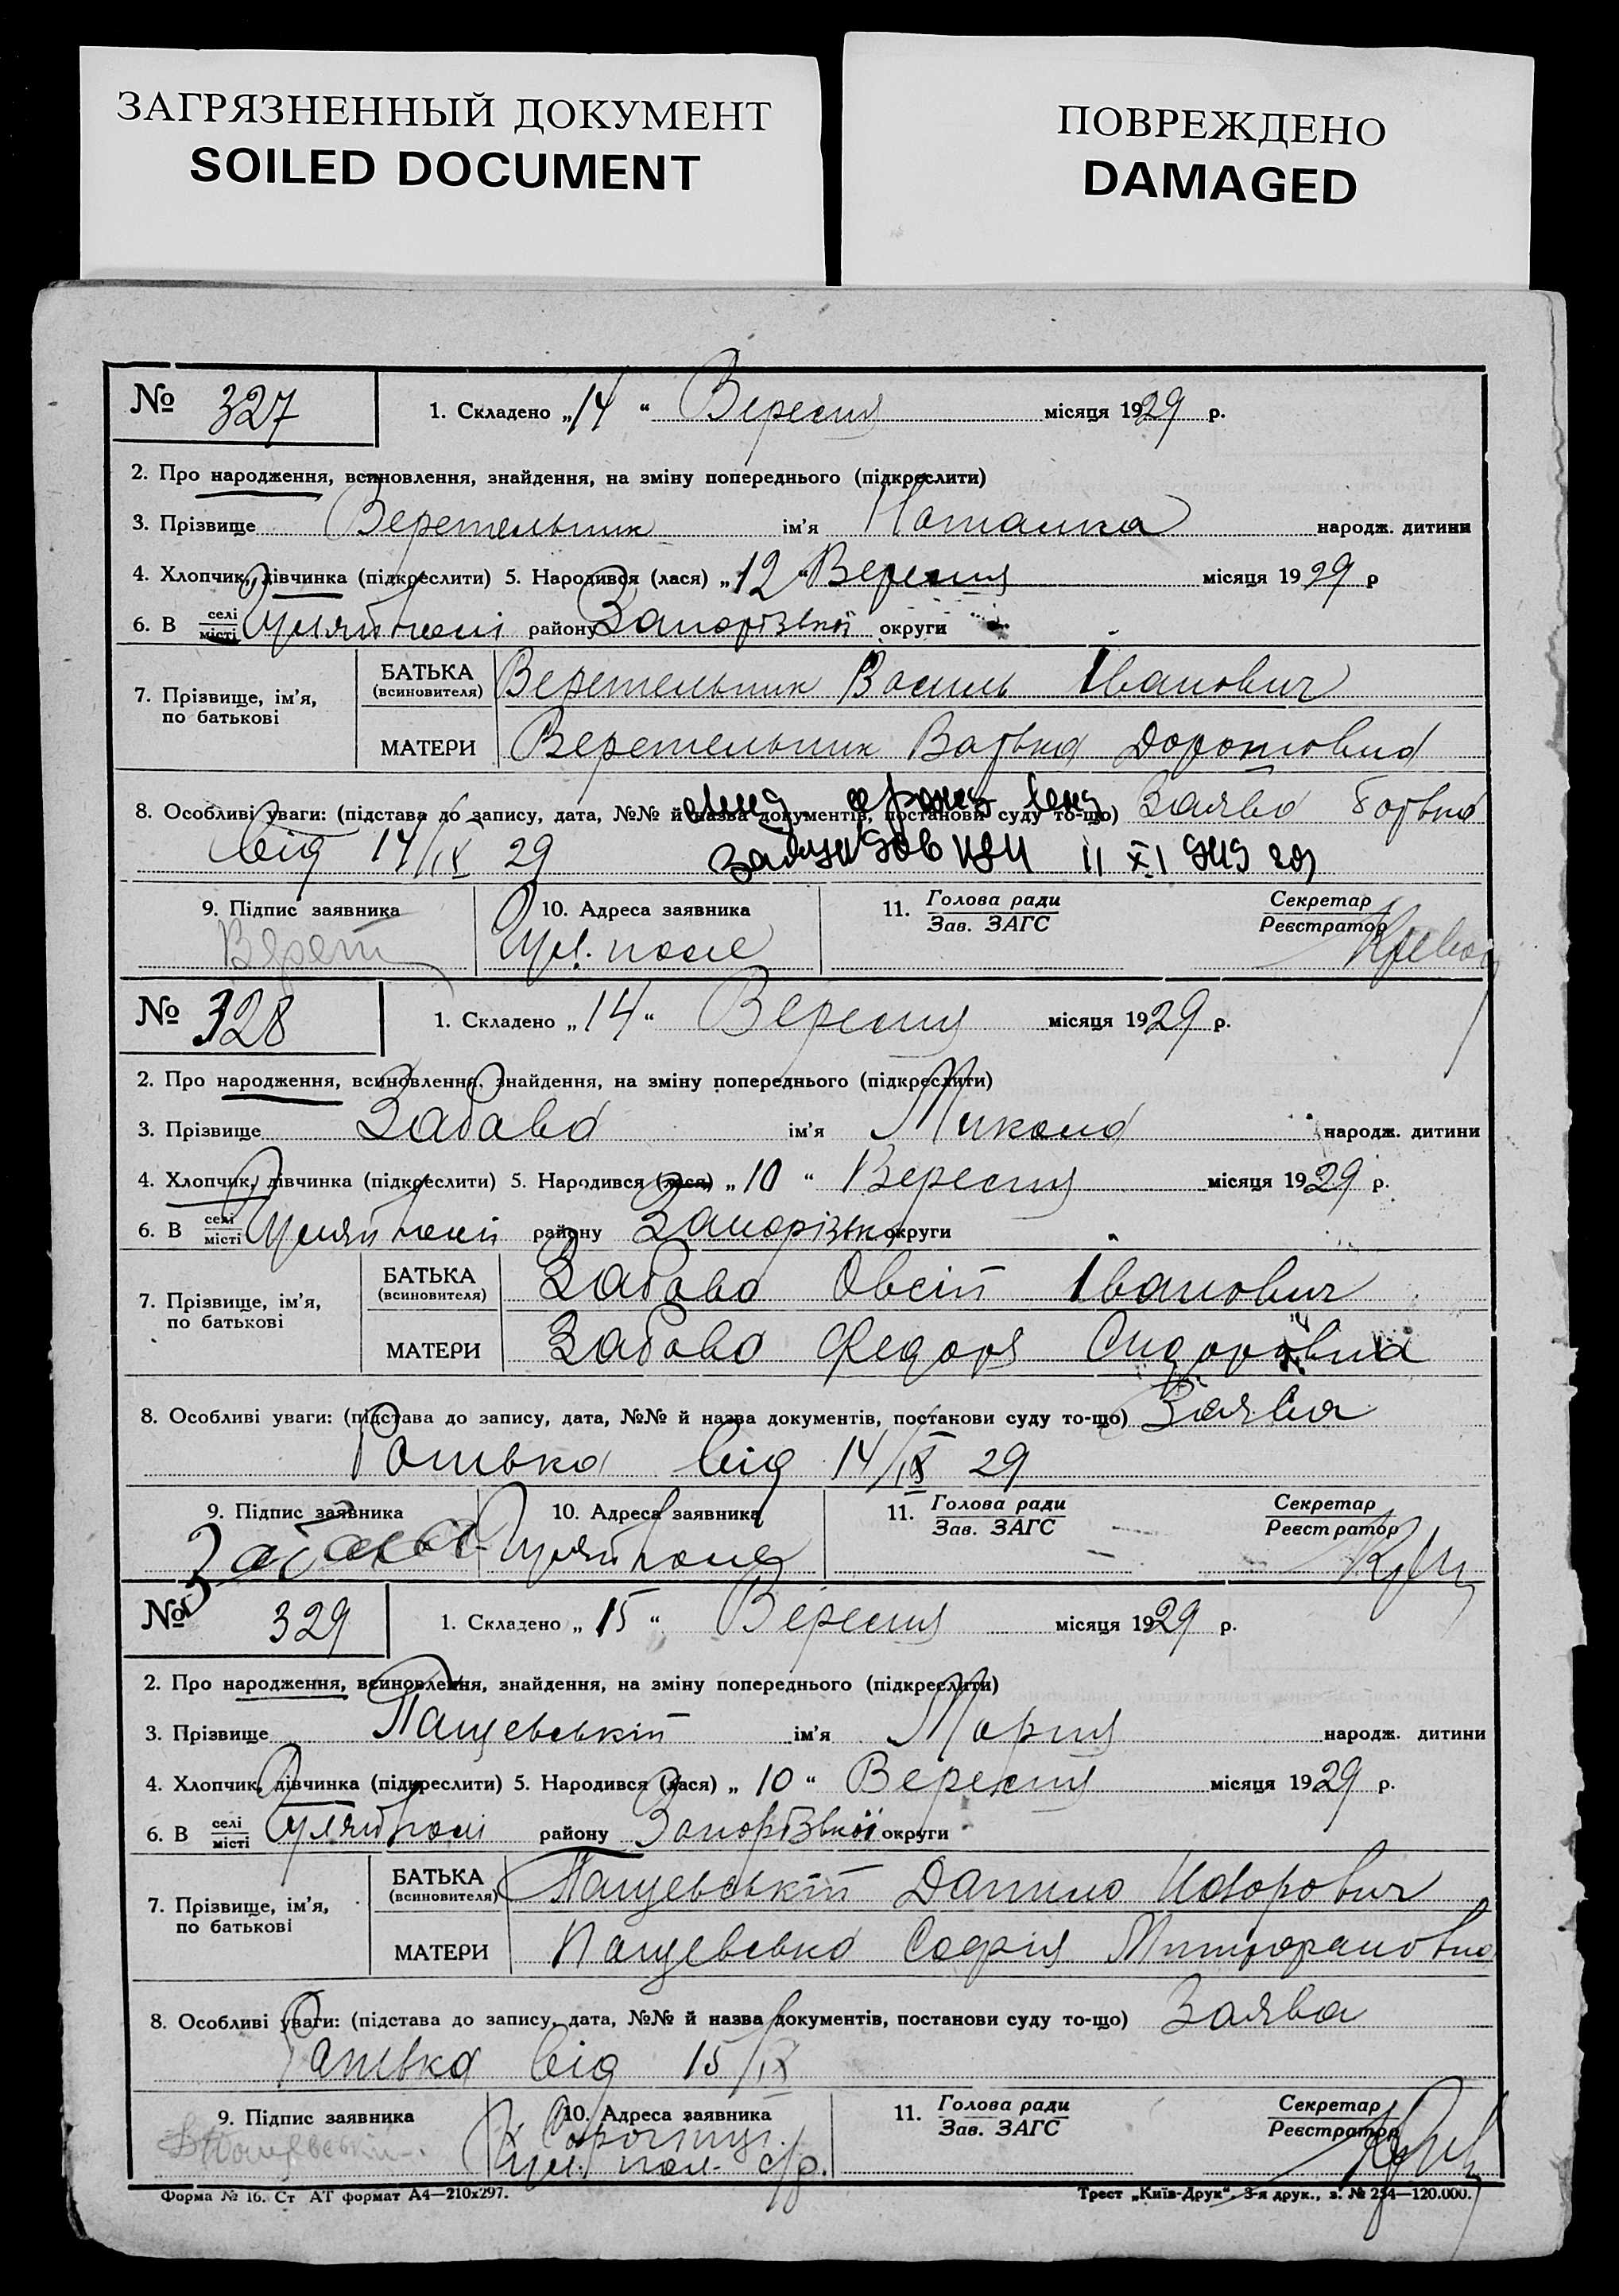 ЗАГРЯЗНЕННЫЙ ДОКУМЕНТ
SOILED DOCUMENT
ПОВРЕЖДЕНО
DAMAGED
№ 327 1. Складено „14“ Вересня місяця 1929 р.
2. Про народження, всиновлення, знайдення, на зміну попереднього (підкреслити)
3. Прізвище Веретельник ім'я Наталка народж. дитини
4. Хлопчик, дівчинка (підкреслити) 5. Народився (лася) „12“ Вересня місяця 1929 р
6. В селі місті Гуляйполі району Запорізької округи
7. Прізвище, ім'я, по батькові
БАТЬКА (всиновителя) Веретельник Василь Іванович
МАТЕРИ Веретельник
8. Особливі уваги: (підстава до запису, дата, №№ й назва документів, постанови суду то-що) Заява батька
від 14/IX 29 II XI
9. Підпис заявника 10. Адреса заявника 11. Голова ради Зав. ЗАГС Секретар Реєстратор
Верет Гул. поле
№ 328 1. Складено „14“ Вересня місяця 1929 р.
2. Про народження, всиновлення, знайдення, на зміну попереднього (підкреслити)
3. Прізвище Забава ім'я Микола народж. дитини
4. Хлопчик, дівчинка (підкреслити) 5. Народився (лася) „10“ Вересня місяця 1929 р.
6. В селі місті Гуляй полі району Запорізьк округи
7. Прізвище, ім'я, по батькові
БАТЬКА (всиновителя) Забава Овсій Іванович
МАТЕРИ Забава Федоря Сидоровна
8. Особливі уваги: (підстава до запису, дата, №№ й назва документів, постанови суду то-що) Заява
Батька від 14/IX 29
9. Підпис заявника 10. Адреса заявника 11. Голова ради Зав. ЗАГС Секретар Реєстратор
Забава Гуляйполе
№ 329 1. Складено „15“ Вересня місяця 1929 р.
2. Про народження, всиновлення, знайдення, на зміну попереднього (підкреслити)
3. Прізвище Пащевській ім'я Мария народж. дитини
4. Хлопчик, дівчинка (підкреслити) 5. Народився (лася) „10“ Вересня місяця 1929 р.
6. В селі місті Гуляйполі району Запорізької округи
7. Прізвище, ім'я, по батькові
БАТЬКА (всиновителя) Пащевській Данило
МАТЕРИ Пащевська Софія Митрофановна
8. Особливі уваги: (підстава до запису, дата, №№ й назва документів, постанови суду то-що) Заява
Батька від 15/IX
9. Підпис заявника 10. Адреса заявника 11. Голова ради Зав. ЗАГС Секретар Реєстратор
Гул. пол. с/р.
Форма № 16. Ст АТ формат А4—210х297. Трест „Київ-Друк“, 3-я друк., з. № 254—120.000.